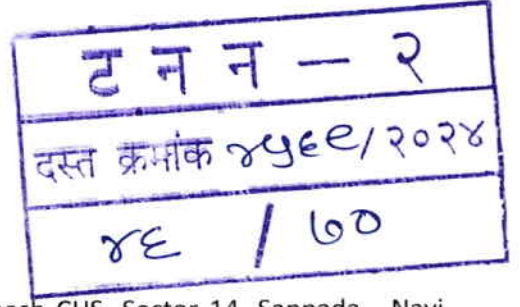 ट न न - २
दस्त क्रमांक ४५६९/२०२४
४६ / ७०
CHS, Sector 14, Sanpada, Navi